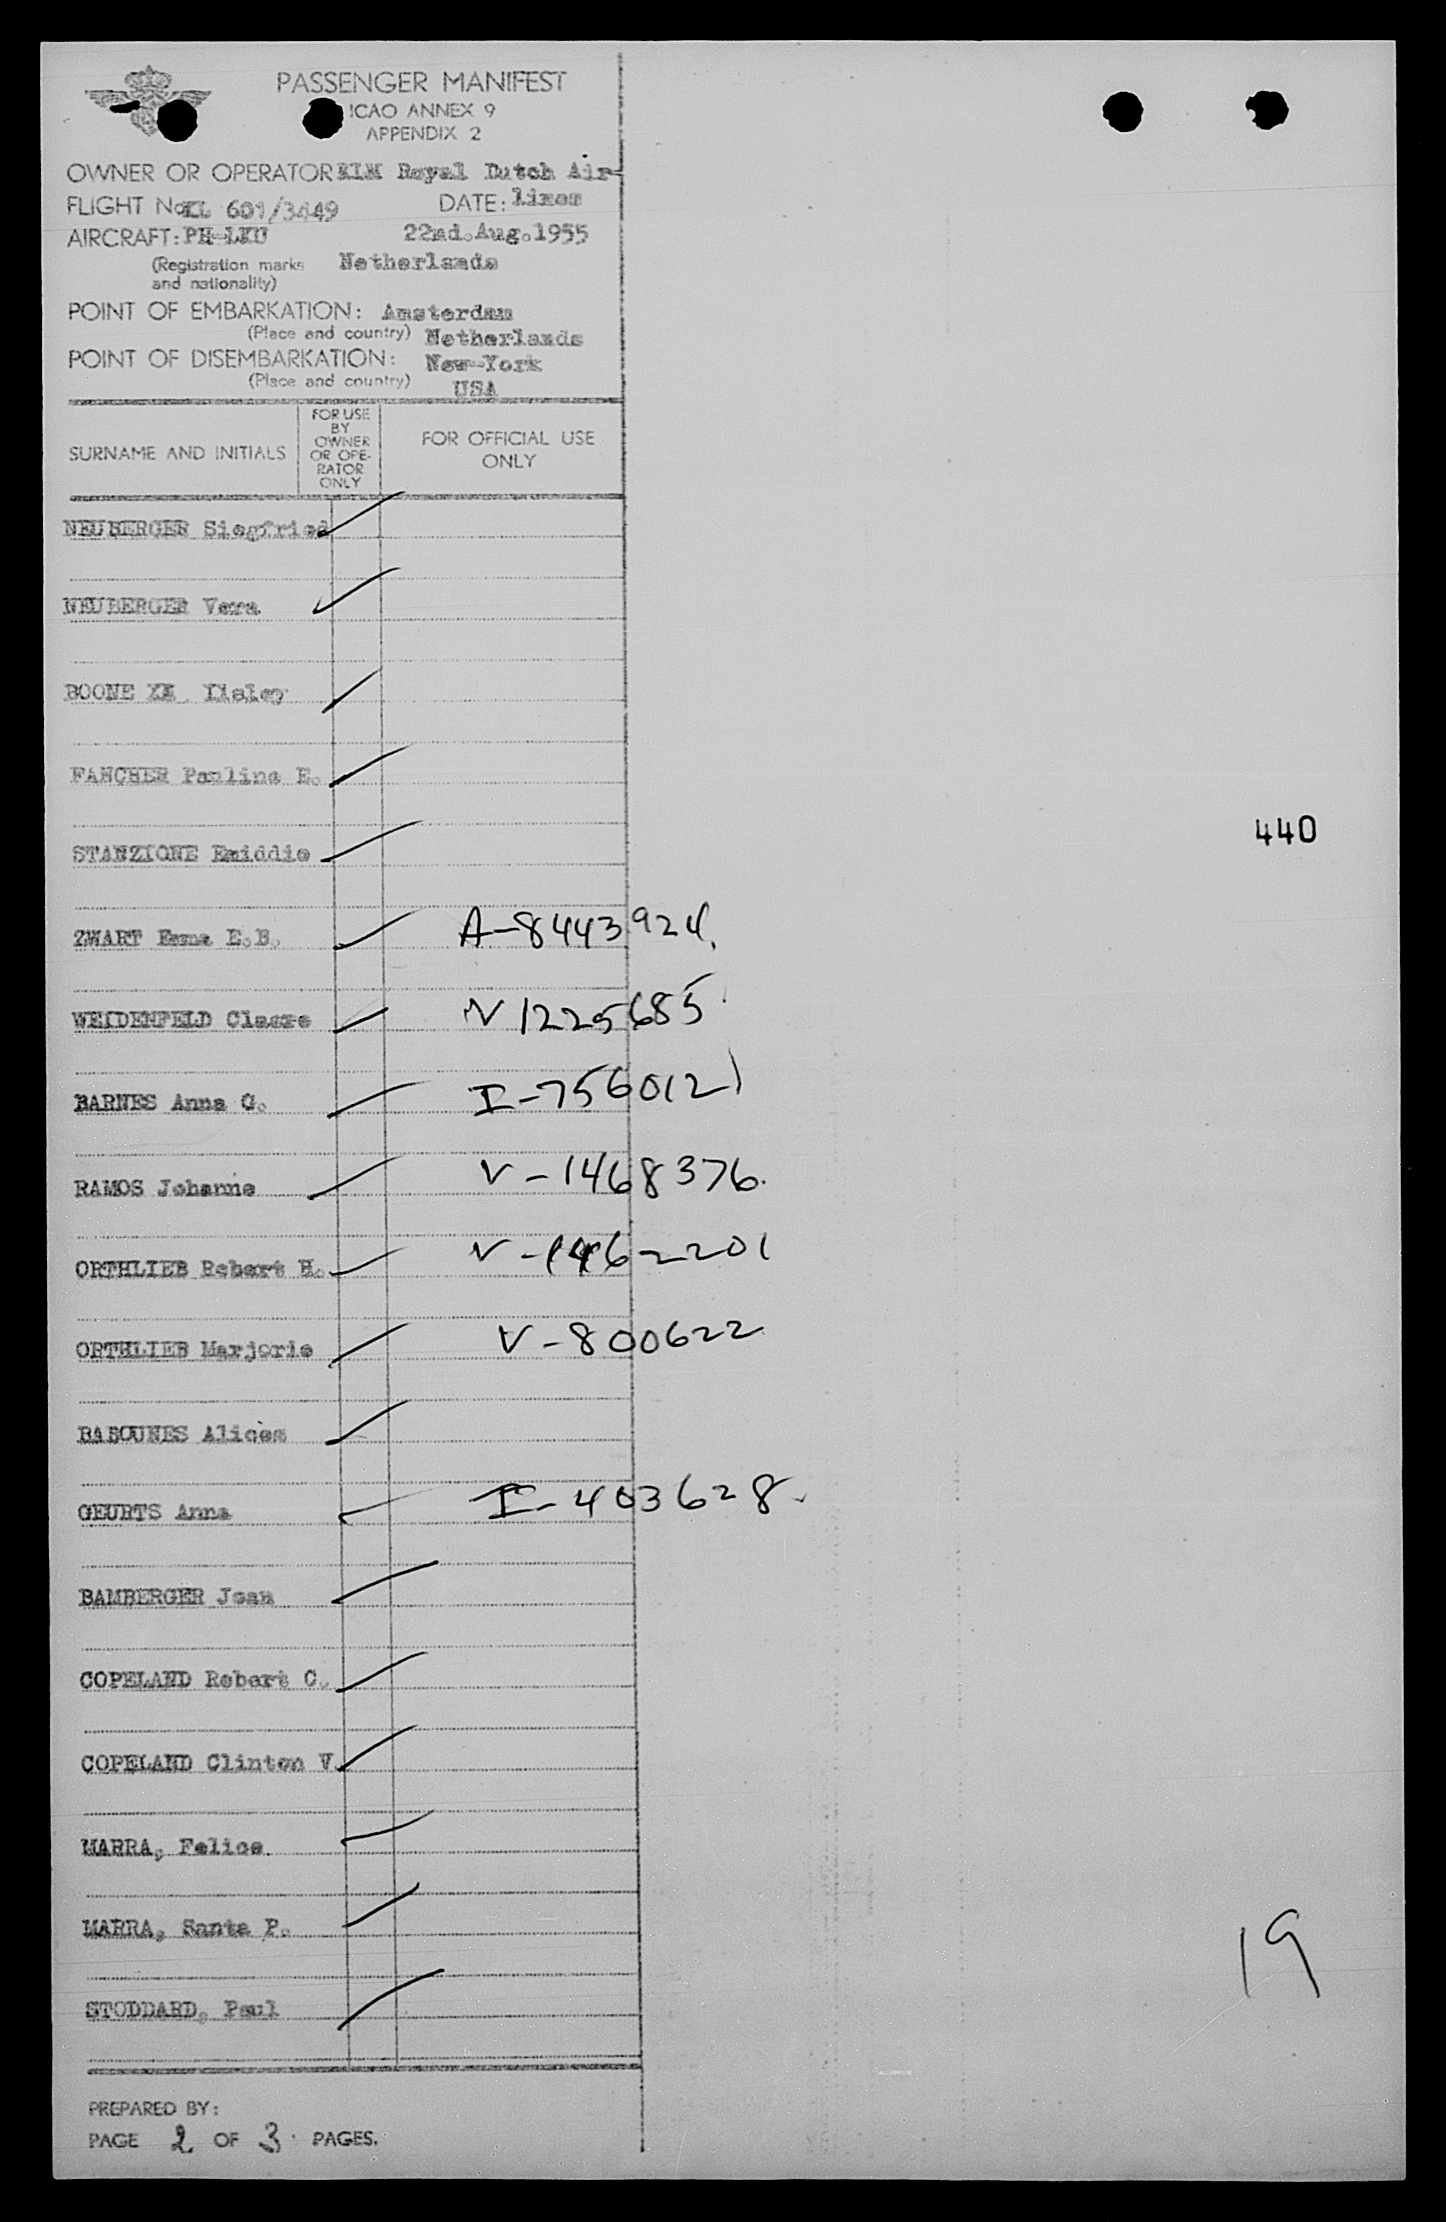 PASSENGER MANIFEST
ICAO ANNEX 9
APPENDIX 2
OWNER OR OPERATOR KLM Royal Dutch Air-
FLIGHT No KL 601/3449 DATE: lines
AIRCRAFT: PH-LKU 22nd.Aug.1955
(Registration marks Netherlands
and nationality)
POINT OF EMBARKATION: Amsterdam
(Place and country) Netherlands
POINT OF DISEMBARKATION: New-York
(Place and country) USA
SURNAME AND INITIALS
FOR USE
BY
OWNER
OR OPE-
RATOR
ONLY
FOR OFFICIAL USE
ONLY
NEUBERGER Siegfried
NEUBERGER Vera
BOONE Ilsley
FANCHER Pauline E.
STANZIONE Emiddio
440
ZWART Emma E.B. A-8443924.
WEIDENFELD Claere V 1225685
BARNES Anna G. I-756012)
RAMOS Johanne V-1468376.
ORTHLIEB Robert H. V-1462201
ORTHLIEB Marjorie V-800622
BABOUNES Alices
GEURTS Anna I-403628.
BAMBERGER Joan
COPELAND Robert C.
COPELAND Clinton V.
MARRA, Felice
MARRA, Santa P.
19
STODDARD, Paul
PREPARED BY:
PAGE 2 OF 3 PAGES.